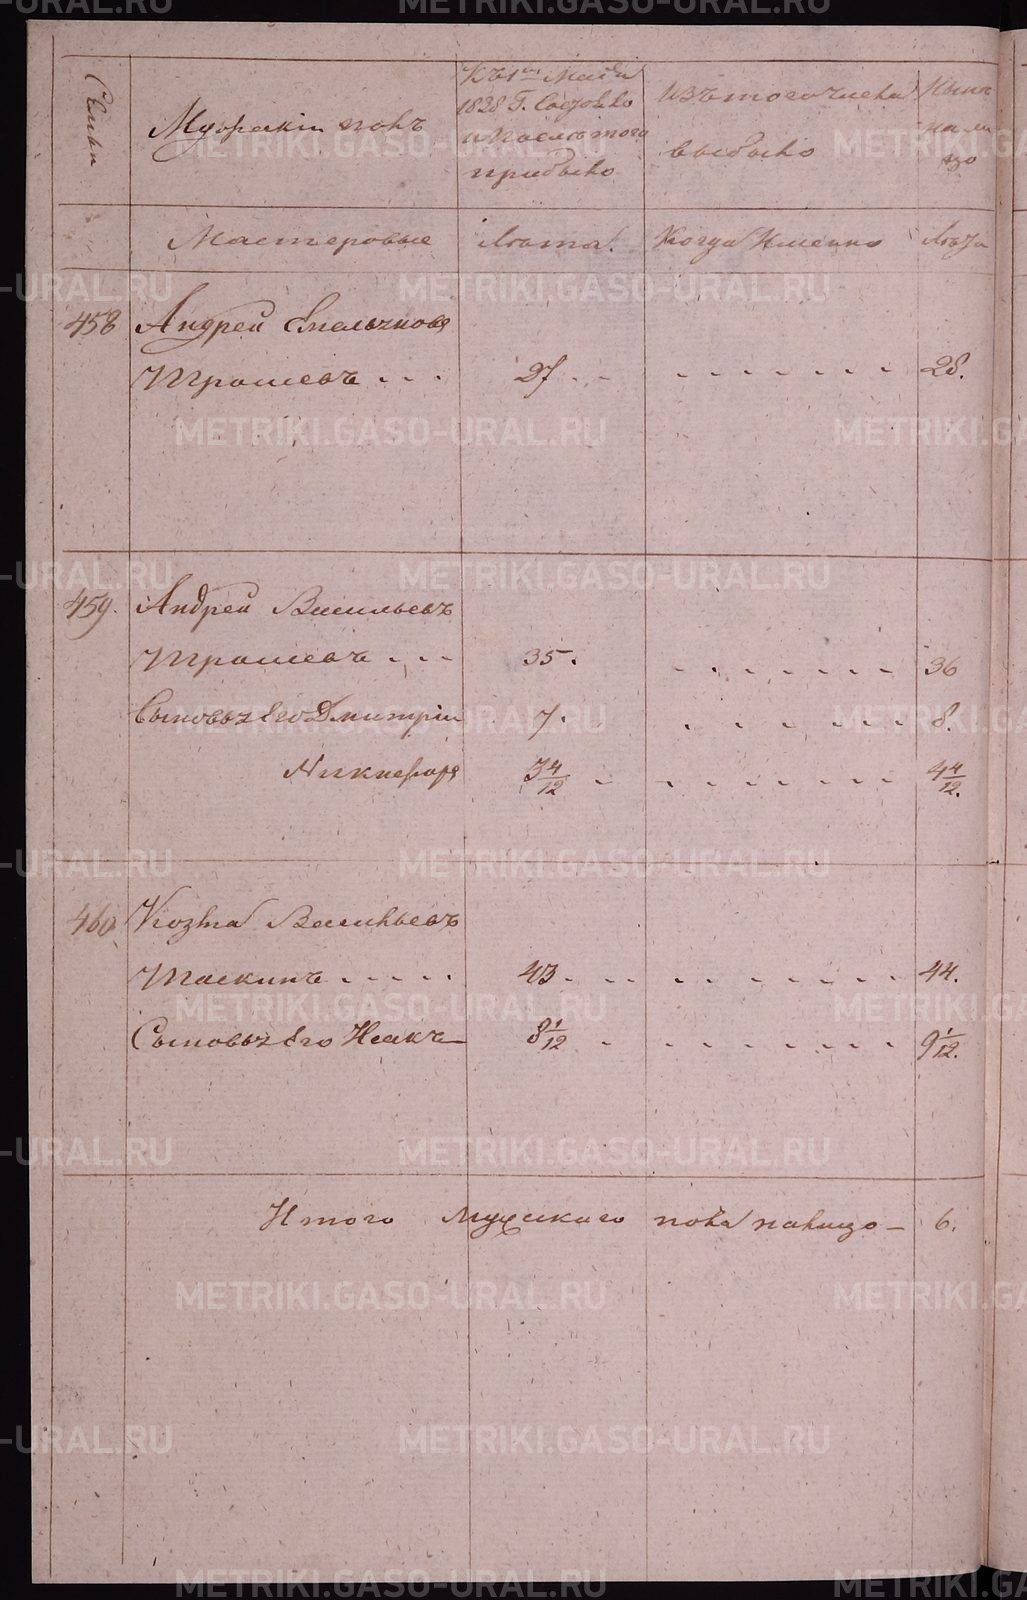 Семьи
Мужескiй полъ
Къ 1му Маiя
1828 Г. Состояло
и После того
прибыло
Изъ того числа
выбыло
Ныне
на ли
цо
Мастеровые
Лета.
Когда Именно
Лета
458
Андрей Емельяновъ
Трошевъ . . .
27 . .
. . . . . . .
28.
459.
Андрей Васильевъ
Трошевъ . . .
35.
. . . . . . .
36
Сыновья Его Дмитрiй
7.
. . . . . .
8.
Никифоръ
3 4/12 .
. . . . . . .
4 4/12.
460
Козма Васильевъ
Таскинъ . . . . .
43 . . .
. . . . . . .
44.
Сыновья Его Исакъ
8 1/12 .
. . . . . . .
9 1/12.
Итого Мужескаго пола налицо – 6.
METRIKI.GASO-URAL.RU